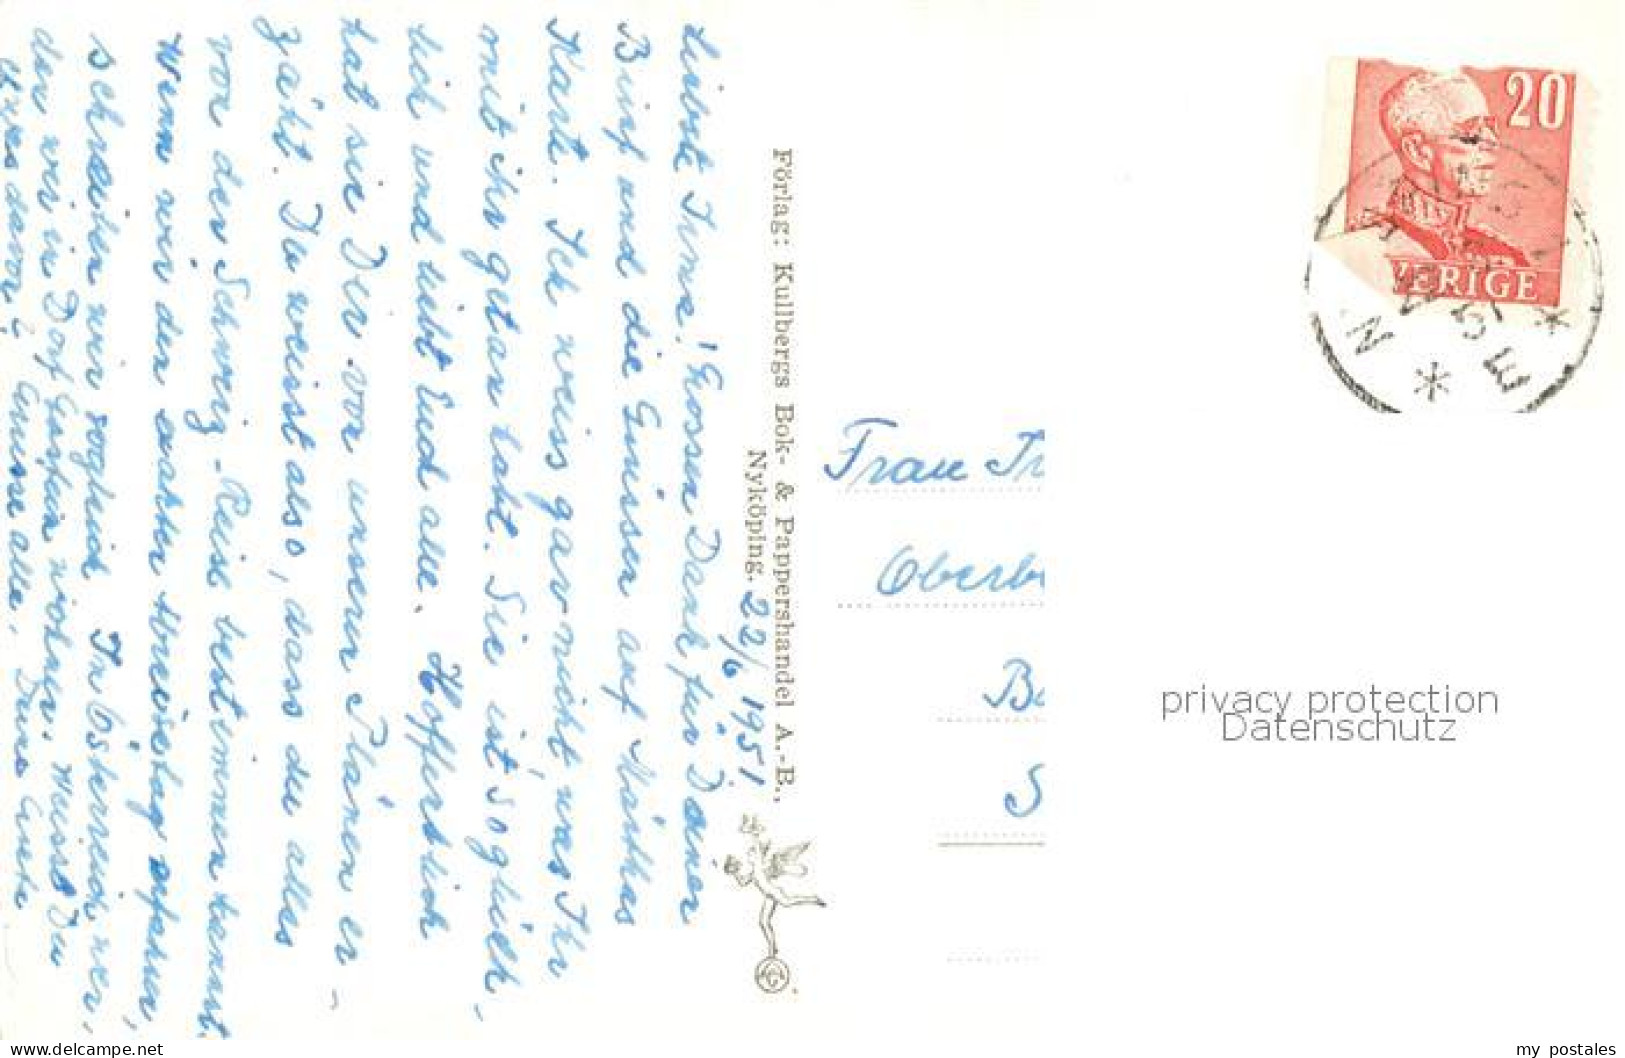 22/6 1951
Liebste Irma! Grossen Dank für Deinen
Brief und die Grüsse auf Märthas
Karte. Ich weiss gar nicht, was Ihr
mit ihr getan habt. Sie ist so glück-
lich und liebt Euch alle. Hoffentlich
hat sie Dir von unseren Plänen er-
zählt. Du weisst also, dass du alles
von der Schweiz-Reise bestimmen kannst.
Wenn wir den exakten Abreisetag erfahren,
schreiben wir sogleich. In Österreich wer-
den wir in Dorf Gastein wohnen. Weisst Du
etwas davon? Grüsse alle. Deine Greta
Förlag: Kullbergs Bok- & Pappershandel A.-B.,
Nyköping.
20
SVERIGE
Frau Ir
Oberb
Ba
S
privacy protection
Datenschutz
www.delcampe.net
my_postales